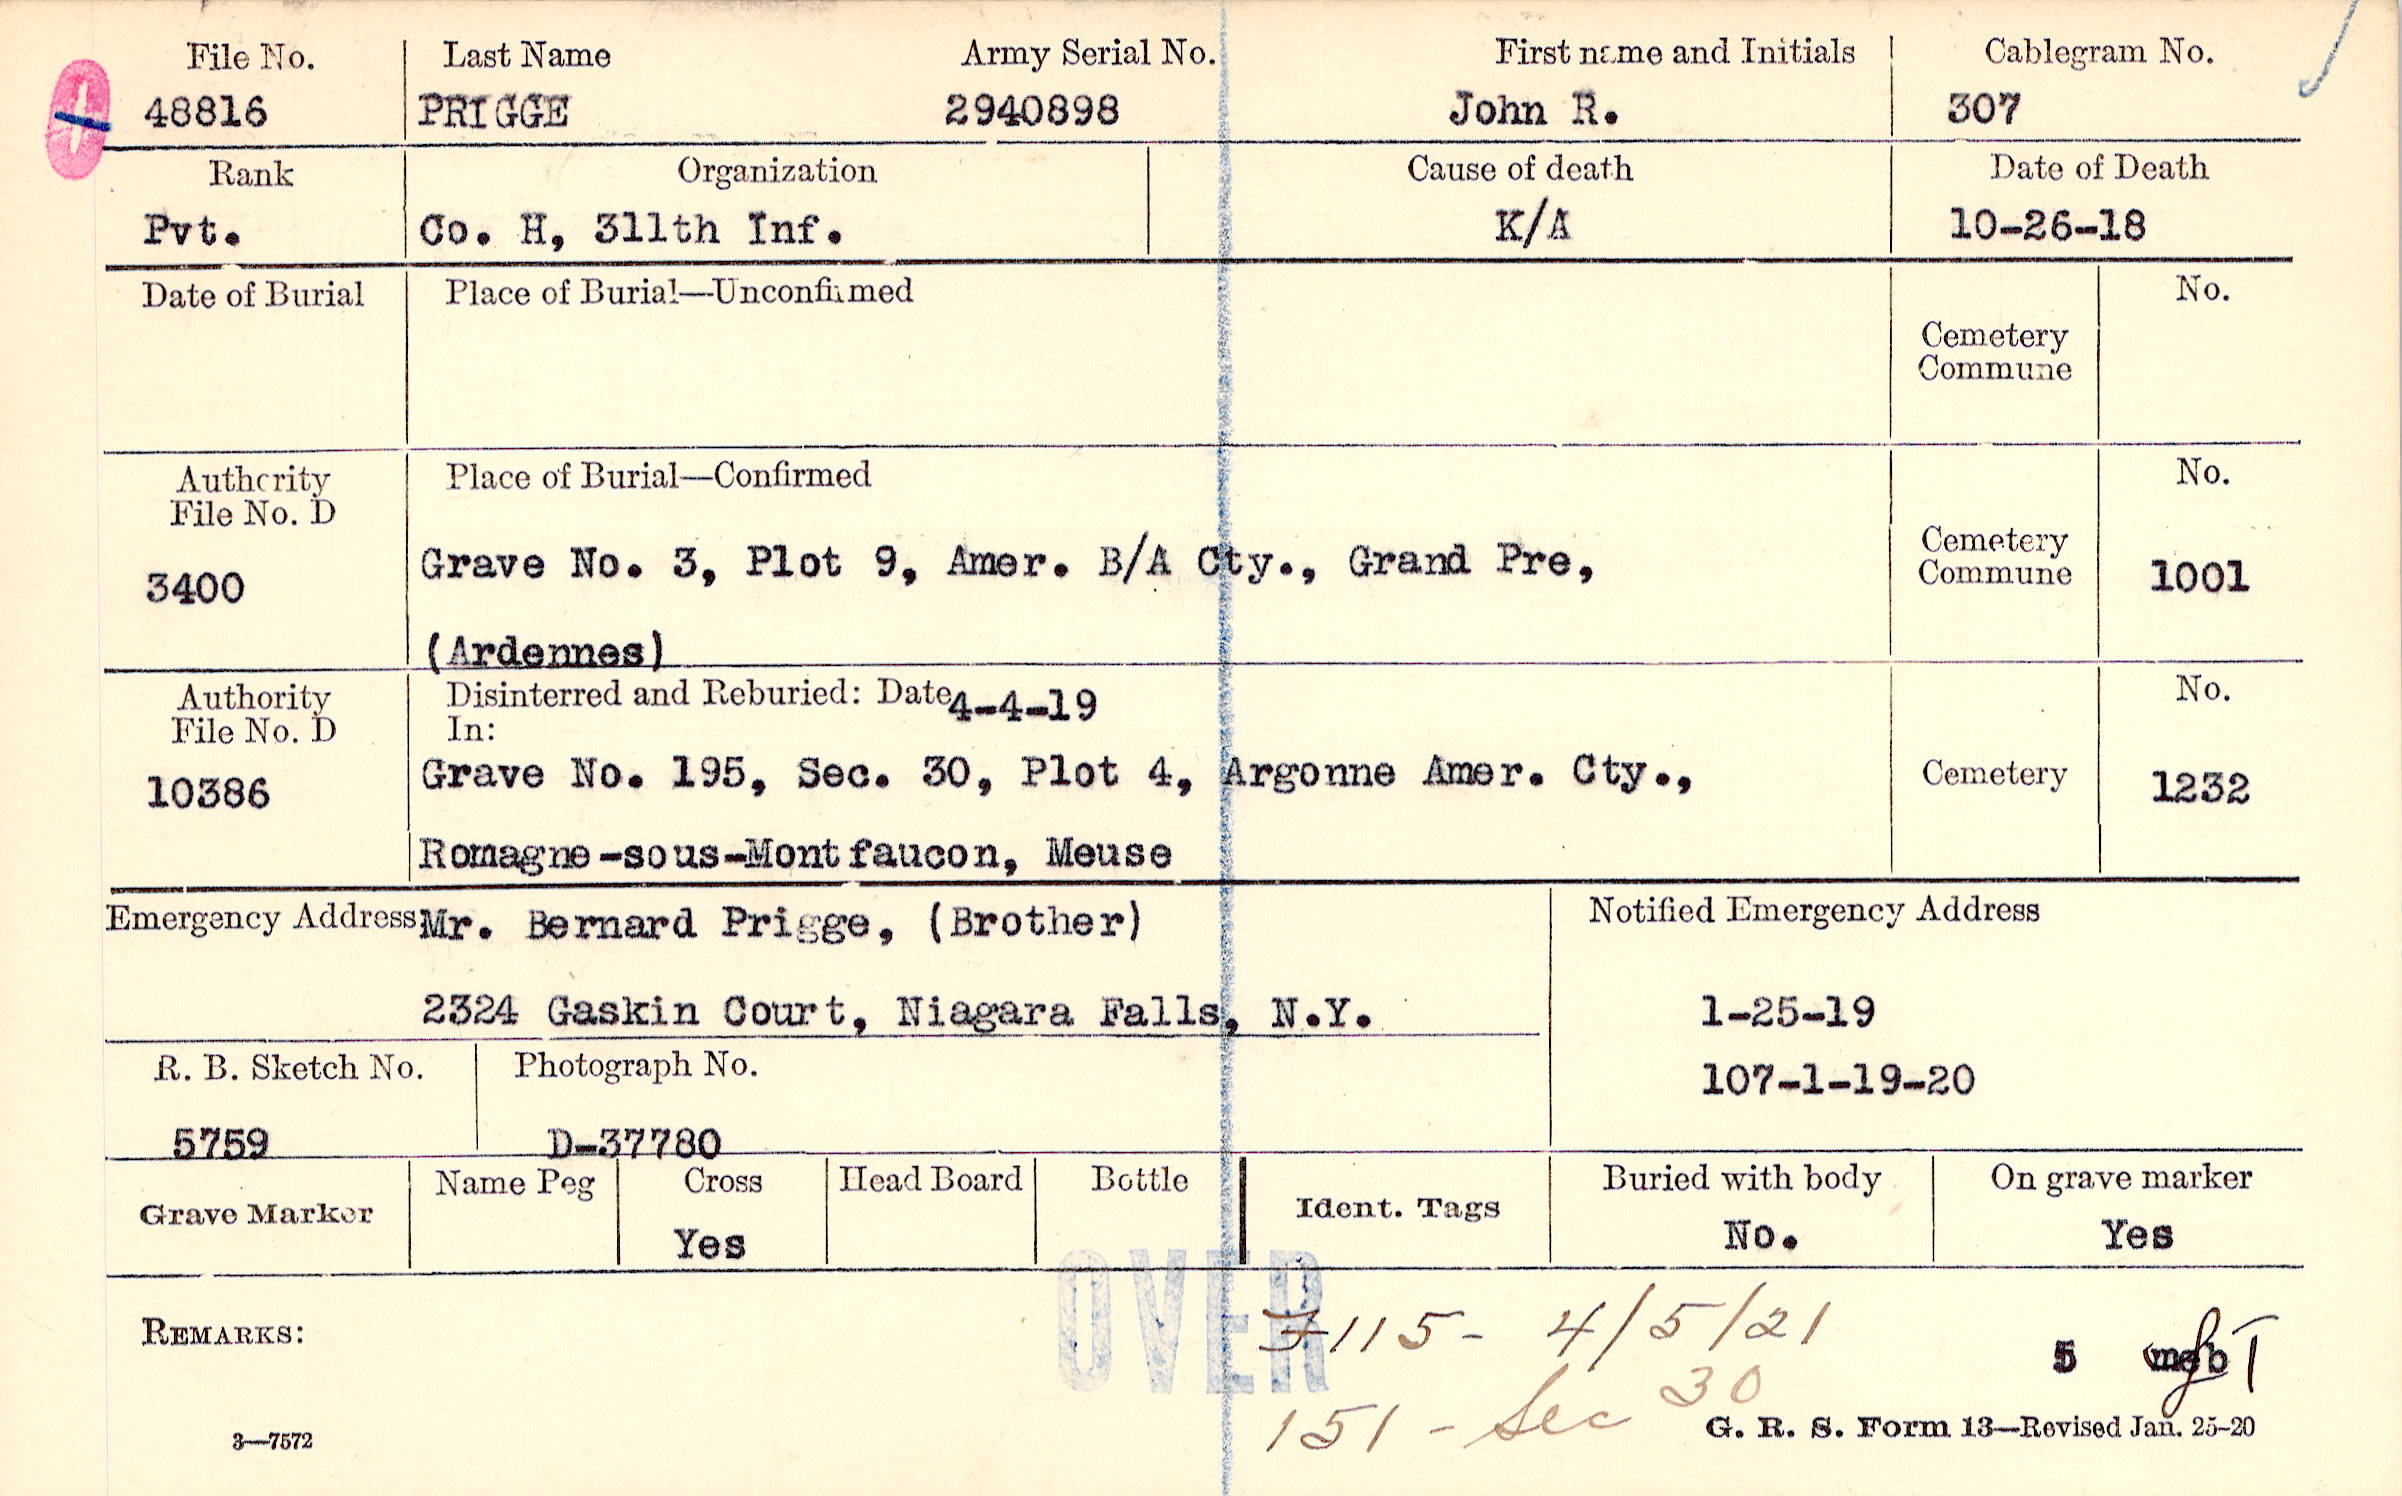 File No. Last Name Army Serial No. First name and Initials Cablegram No.
48816 PRIGGE 2940898 John R. 307
Rank Organization Cause of death Date of Death
Pvt. Co. H, 311th Inf. K/A 10-26-18
Date of Burial Place of Burial—Unconfirmed No.
Cemetery
Commune
Authority Place of Burial—Confirmed No.
File No. D
Cemetery
Commune
3400 Grave No. 3, Plot 9, Amer. B/A Cty., Grand Pre, 1001
(Ardennes)
Authority Disinterred and Reburied: Date 4-4-19 No.
File No. D In:
10386 Grave No. 195, Sec. 30, Plot 4, Argonne Amer. Cty., Cemetery 1232
Romagne-sous-Montfaucon, Meuse
Emergency Address Mr. Bernard Prigge, (Brother) Notified Emergency Address
2324 Gaskin Court, Niagara Falls, N.Y. 1-25-19
R. B. Sketch No. Photograph No. 107-1-19-20
5759 D-37780
Grave Marker Name Peg Cross Head Board Bottle Ident. Tags Buried with body On grave marker
Yes No. Yes
OVER
115- 4/5/21
REMARKS: 5
151 - Sec 30
3—7572 G. R. S. Form 13—Revised Jan. 25-20